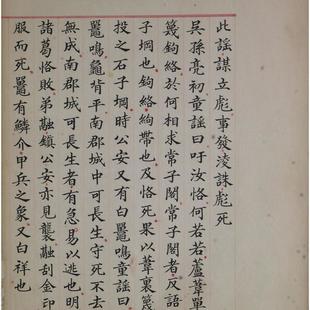 此謡謀立彪事發淩誅彪死
吳孫亮初童謡曰吁汝恪何若若蘆葦單
篾鉤絡於何相求常子閣常子閣者反語
子堈也鉤絡絢帶也及恪死果以葦裹篾
投之石子堈時公安又有白鼉鳴童謡曰
鼉鳴龜背平南郡城中可長生守死不去
無成南郡城可長生者有急易以逃也明
諸葛恪敗弟融鎮公安亦見襲融刮金印
服而死鼉有鱗介甲兵之象又白祥也